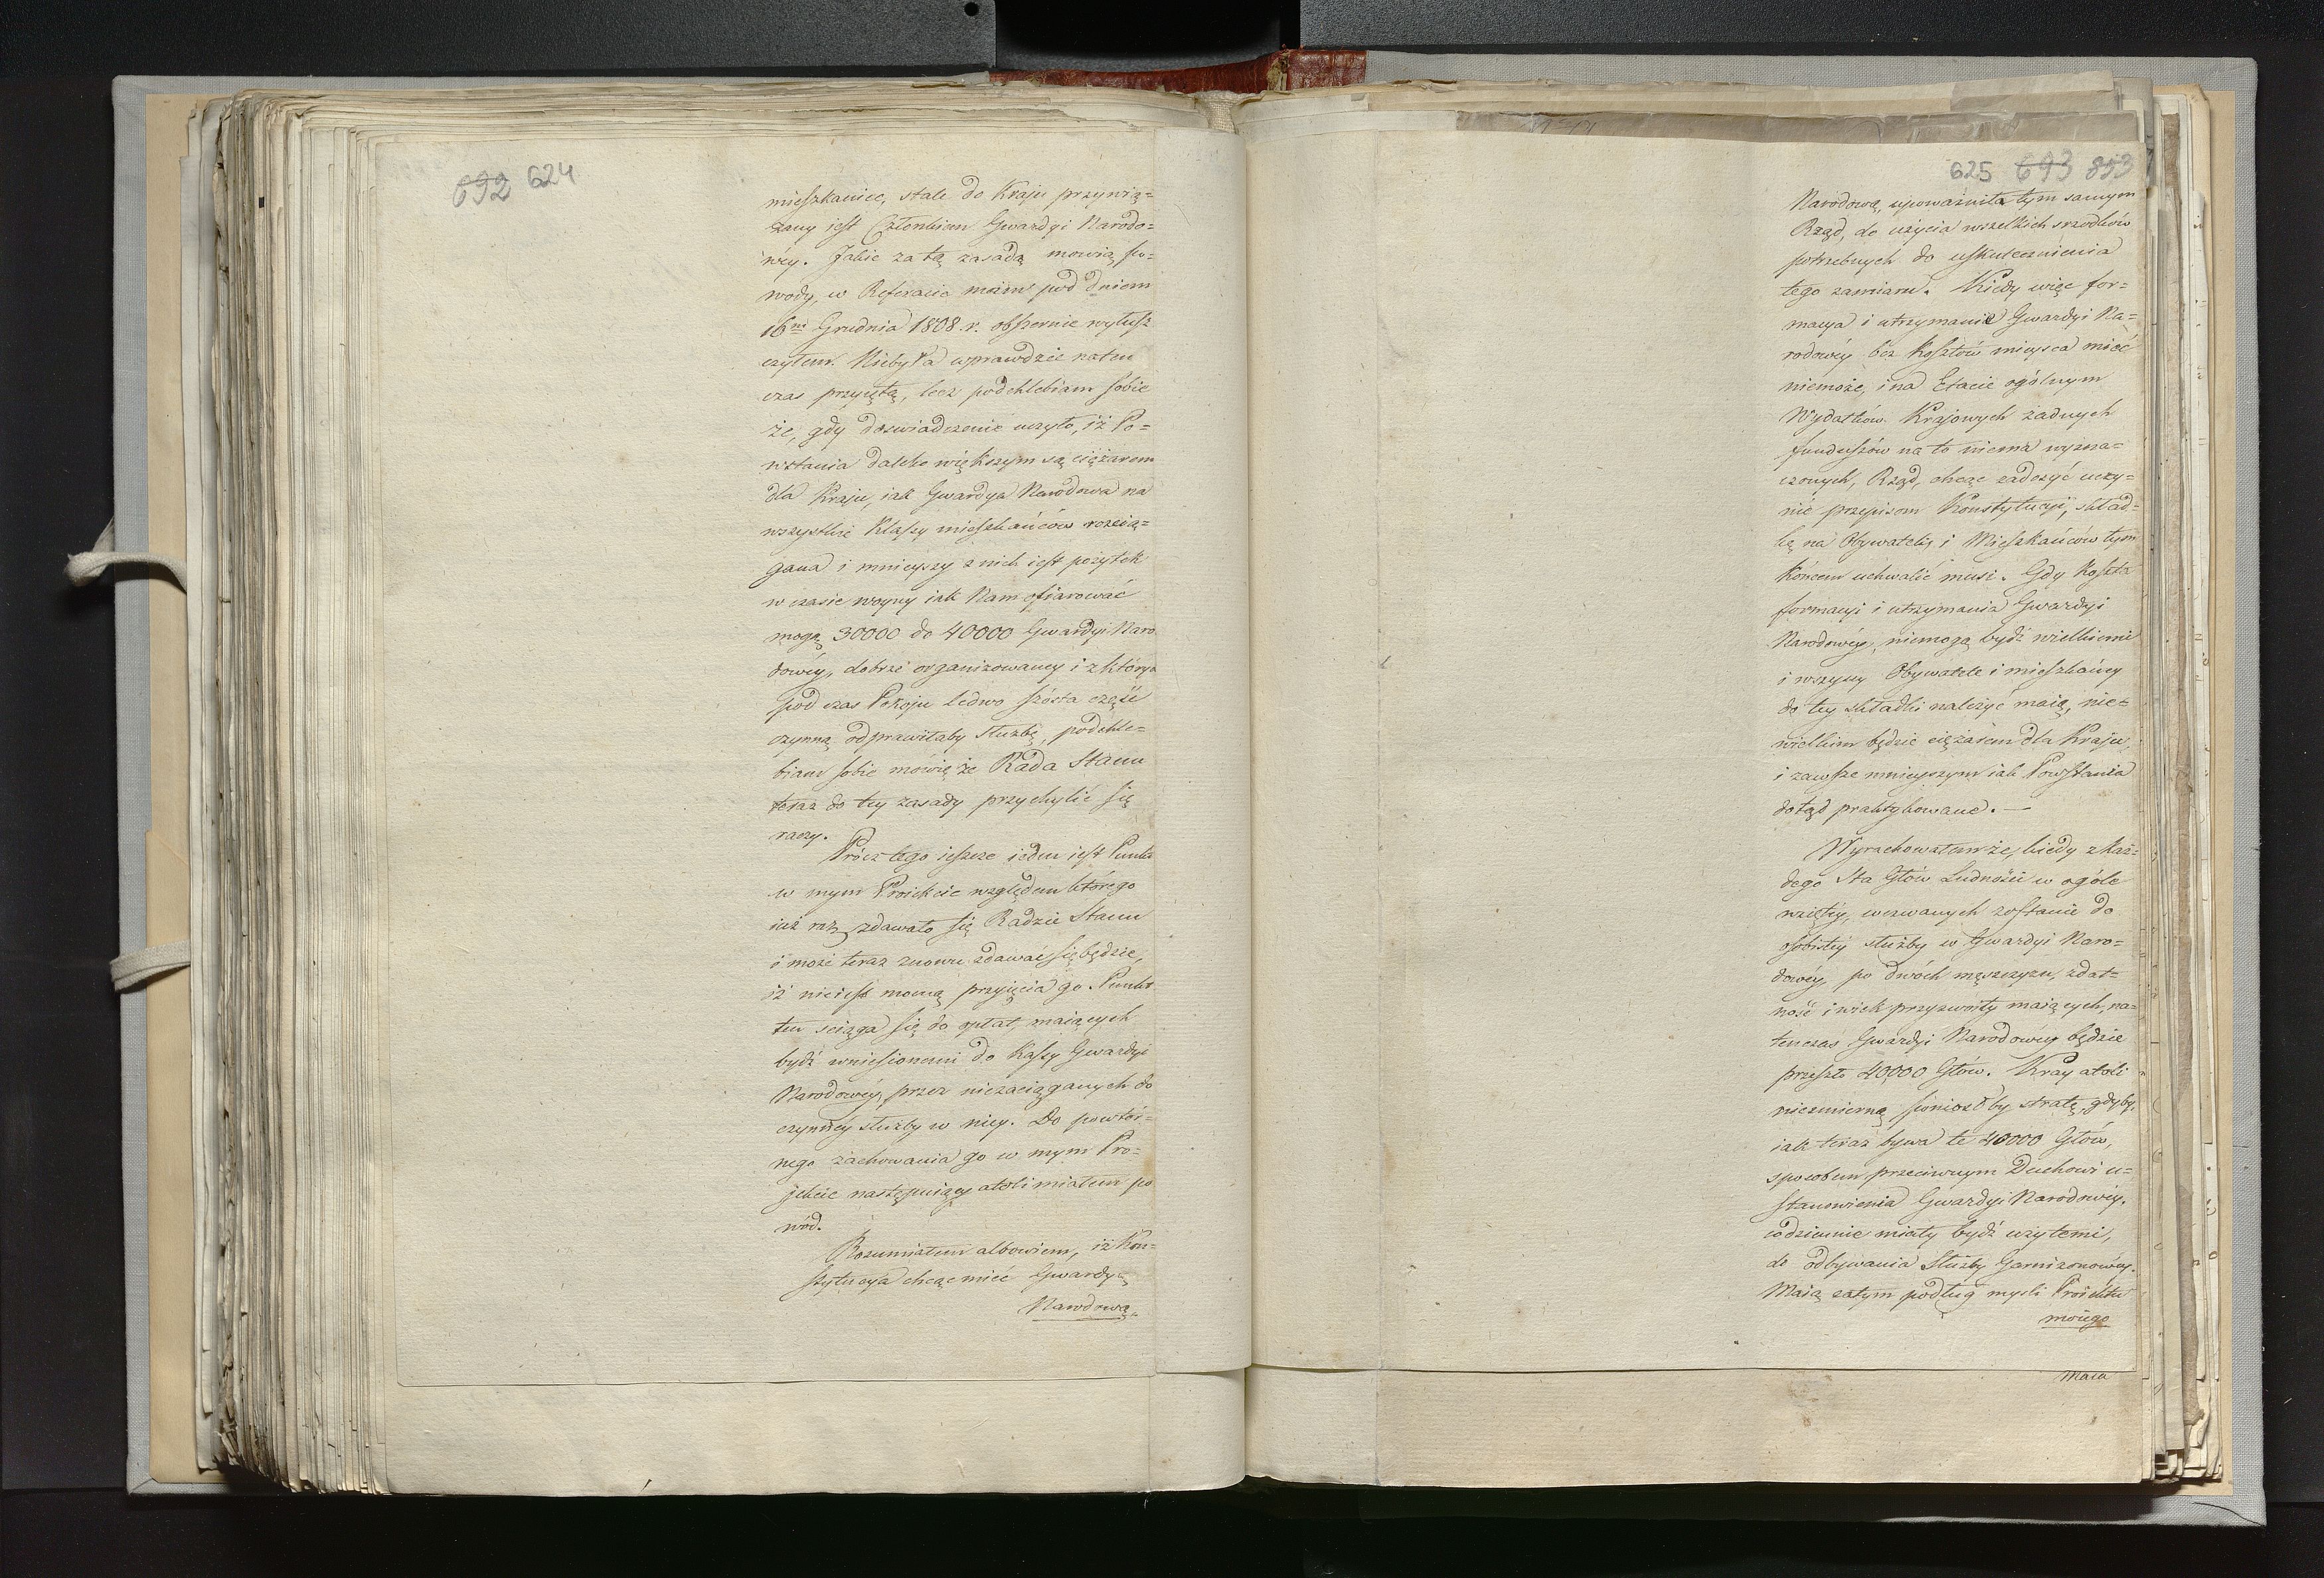 692 624
mieszkaniec, stale do Kraju przywią=
zany jest Członkiem Gwardyi Narodo=
wéy. Jakie za tą zasadą mowią po=
wody, w Referacie moim pod dniem
16ym Grudnia 1808. r. obszernie wyłusz
czyłem. Niebyła wprawdzie naten
czas przyiętą, lecz podchlebiam sobie
że, gdy doswiadczenie uczyło, iż Po=
wstania daleko większym są ciężarem
dla Kraju, iak Gwardya Narodowa na
wszystkie Klassy mieszkańców rozcią=
gana i mnieyszy z nich iest pożytek
w czasie woyny iak Nam ofiarować
mogą 30000 do 40000 Gwardyi Naro
dowéy, dobrze organizowaney i z którey
pod czas Pokoju ledwo szósta część
czynną odprawiłaby służbę, podchle=
biam sobie mowię że Rada Stanu
teraz do tey zasady przychylić się
raczy.
Prócz tego ieszcze ieden iest Punkt
w mym Proiekcie względem którego
iuż raz zdawało się Radzie Stanu
i może teraz znowu zdawać się będzie,
iż nieiest mocną przyięcia go. Punkt
ten sciąga się do opłat, maiących
bydź wniesionemi do Kassy Gwardyi
Narodowéy, przez niezaciąganych do
czynney służby w niey. Do powtór=
nego zachowania go w mym Pro=
jekcie następuiący atoli miałem po
wód.
Rozumiałem albowiem, iż Kon=
stytucya chcąc mieć Gwardyą
Narodową.=
625 693 853
Narodową, upoważniła tym samym
Rząd, do użycia wszelkich srzodków
potrzebnych do uskutecznienia
tego zamiaru. Kiedy więc for=
macya i utrzymanie Gwardyi Na=
rodowéy bez kosztów mieysca mieć
niemoże, i na Etacie ogólnym
Wydatków Krajowych żadnych
funduszów na to niema wyzna=
czonych, Rząd, chcąc zadosyć uczy=
nić przepisom Konstytucyi, skład=
kę na Obywateli i Mieszkańców tym
końcem uchwalić musi. Gdy koszta
formacyi i utrzymania Gwardyi
Narodowéy, niemogą bydź wielkiemi
i wszyscy Obywatele i mieszkańcy
do tey składki należyć maią, nie=
wielkim będzie ciężarem dla Kraju,
i zawsze mnieyszym iak Powstania
dotąd praktykowane.—
Wyrachowałem że, kiedy z każ=
dego Sta Głów Ludności w ogóle
wziętéy, wezwanych zostanie do
osobistéy służby w Gwardyi Naro=
dowéy po dwóch męszczyzn, zdat=
ność i wiek przyzwoity maiących, na=
tenczas Gwardyi Narodowey będzie
przeszło 40,000 Głów. Kray atoli
niezmierną poniosłby stratę, gdyby,
iak teraz bywa te 40000 Głów,
sposobem przeciwnym Duchowi u=
stanowienia Gwardyi Narodowéy,
codziennie miały bydź użytemi,
do odbywania Służby Garnizonowéy.
Maią zatym podług mysli Proiektu
moiego
Maia